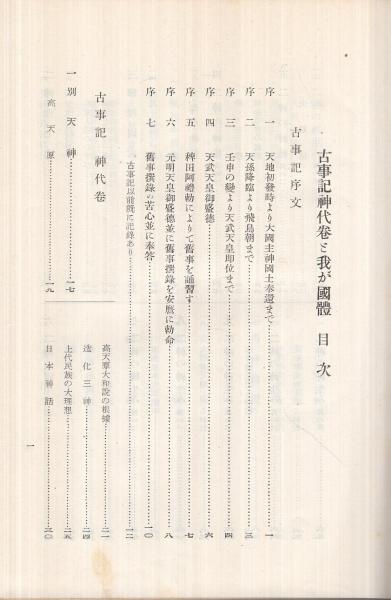 古事記神代卷と我が國體 目次
古事記序文
序 一 天地初發時より大國主神國土奉還まで……………一
序 二 天孫降臨より飛鳥朝まで……………三
序 三 壬申の變より天武天皇即位まで……………四
序 四 天武天皇御盛德……………六
序 五 稗田阿禮勅によりて舊事を誦習す……………七
序 六 元明天皇御盛德並に舊事撰錄を安麿に勅命……………八
序 七 舊事撰錄の苦心並に奉答……………一〇
古事記以前既に記錄あり……………一二
古事記 神代卷
一 別天神……………一七
高天原……………一九
高天原大和説の根據……………二一
造化三神……………二四
上代民族の大理想……………二五
日本神話……………三〇
一